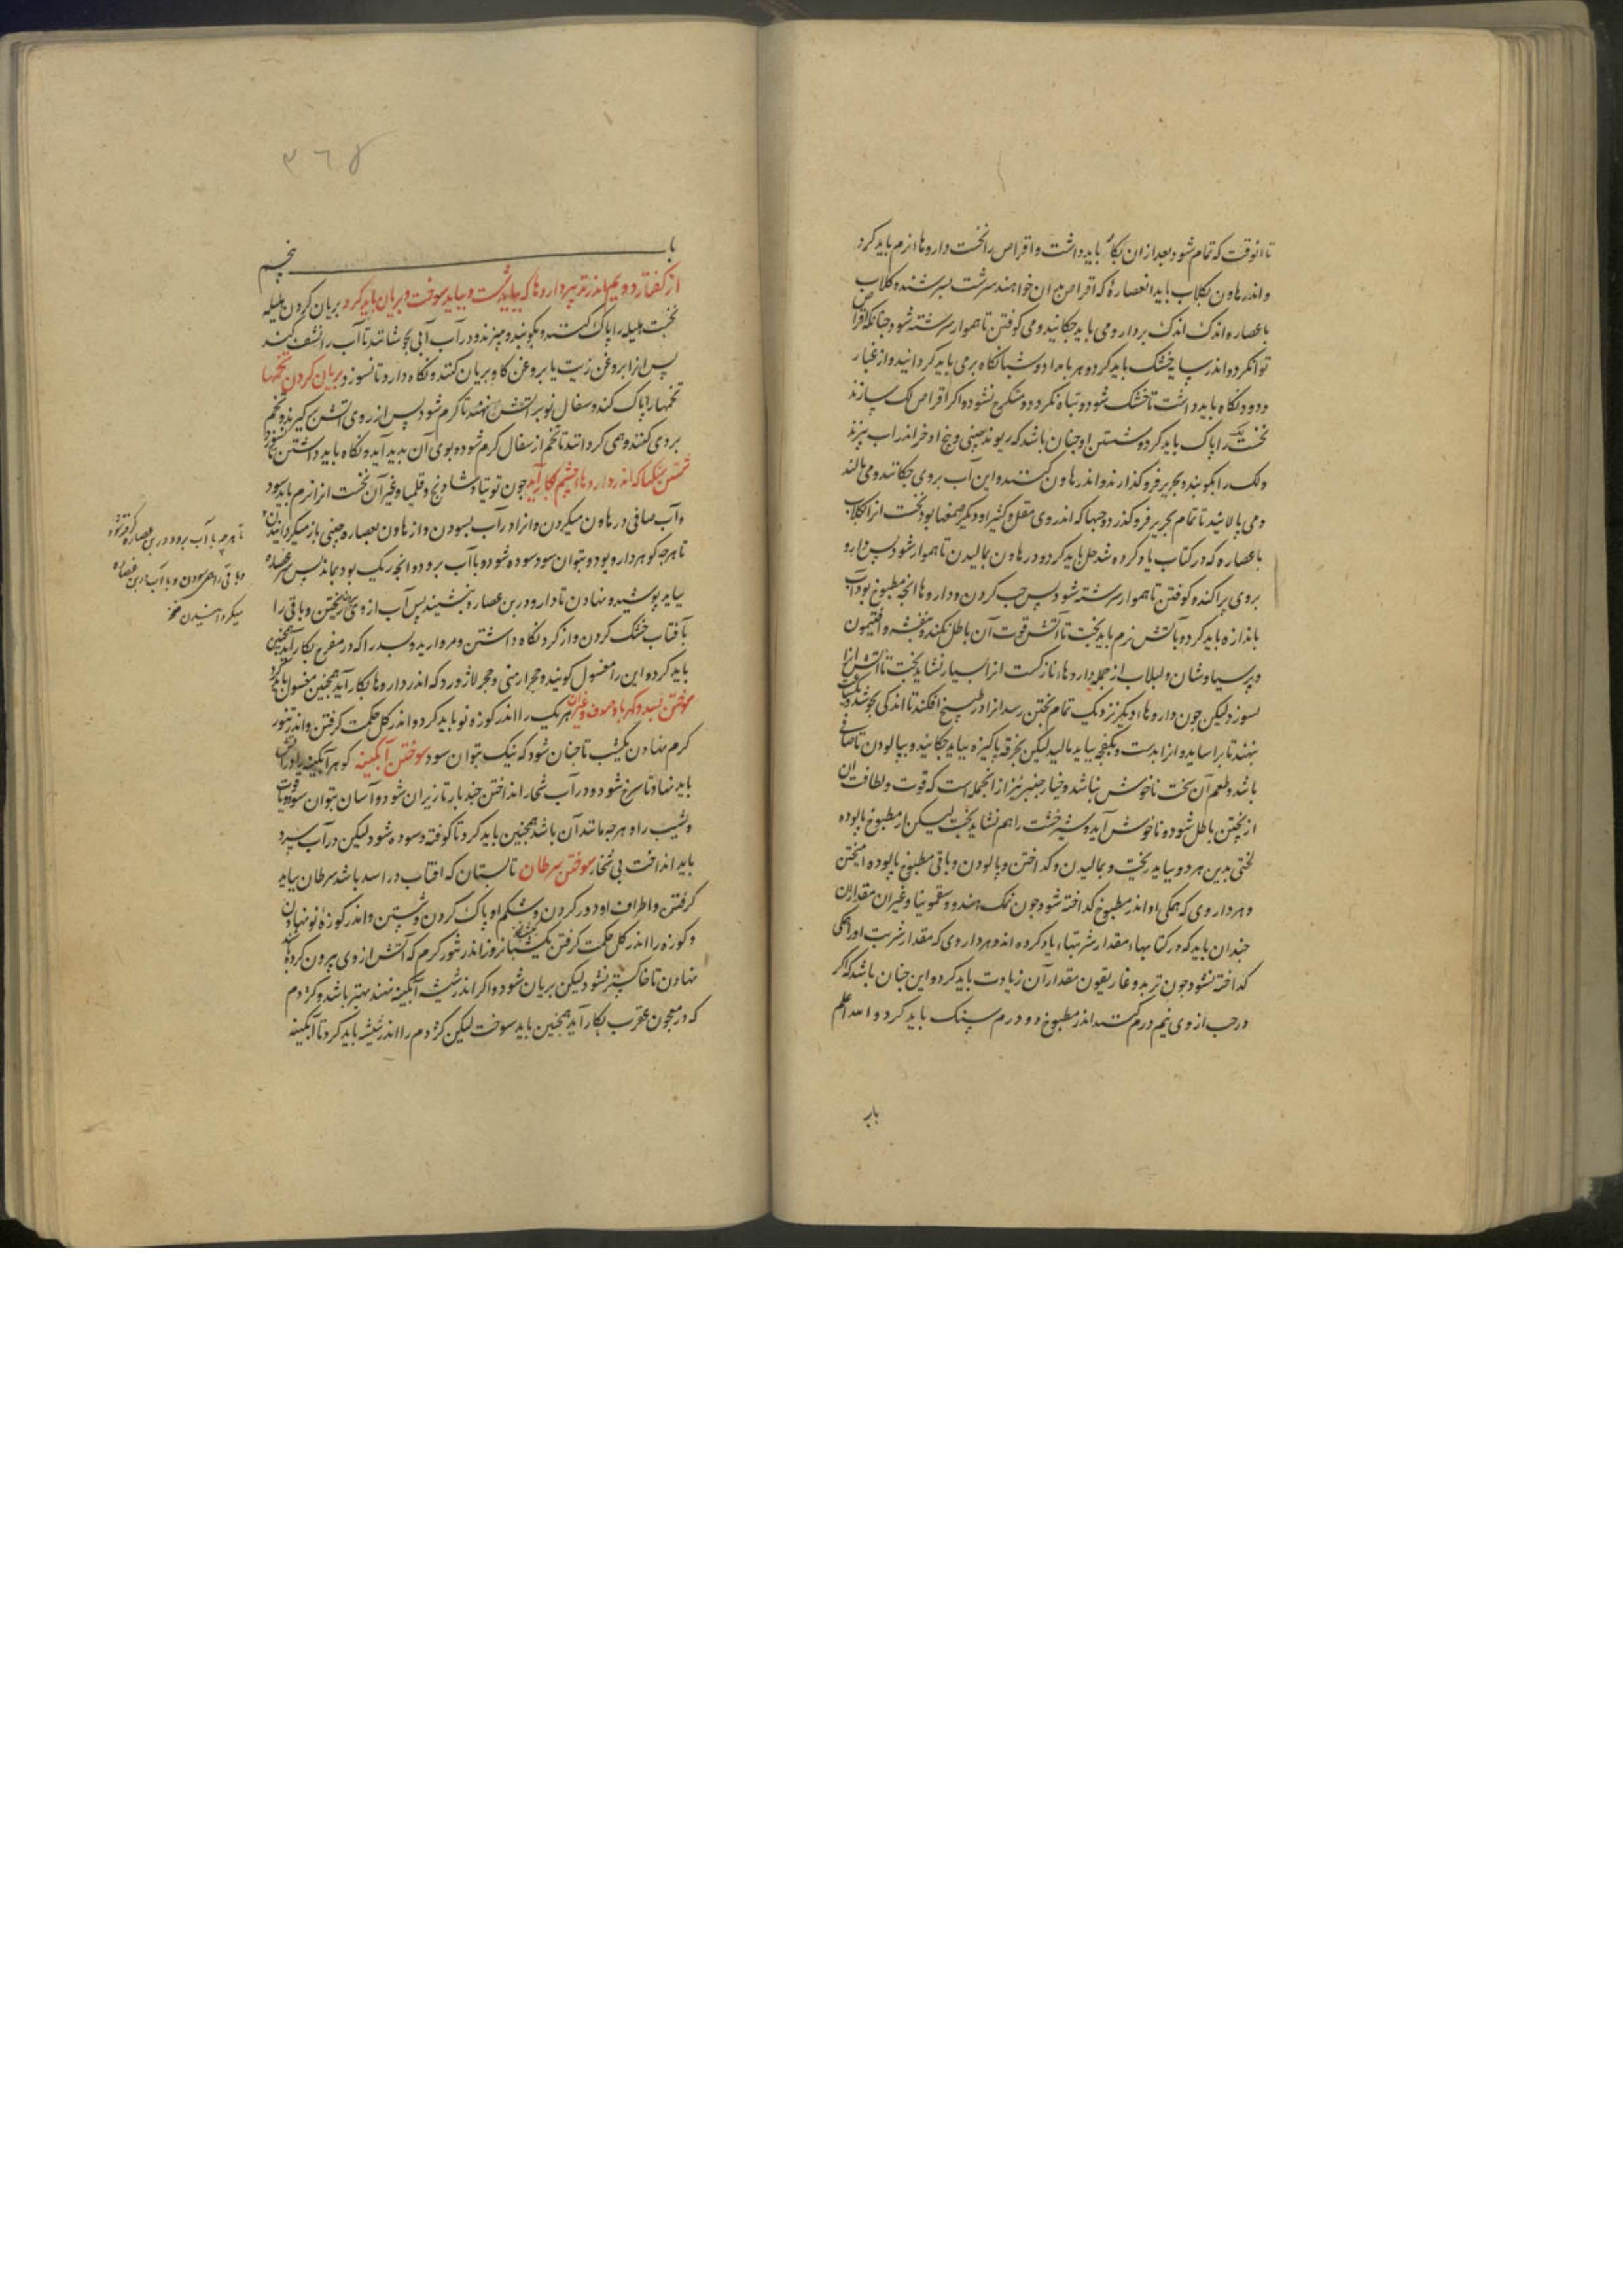 تا انوقت که تمام شود بعد از ان بکار باید داشت و اقراص را نخست داروها نرم باید کرد
و اندر هاون بکلاب باید انعصاره که اقراص بدان خواهند سرشت بسرشند و کلاب
یا عصاره اندک اندک بر دارو می باید چکانید و می کوفتن تا هموار سرشته شود چنانکه اقراص
توان کرد و اندر سایه خشک باید کرد و هر بامداد و شبانگاه برمی باید کردانید و از غبار
و دود نکاه باید داشت تا خشک شود و تباه نکردد و متکرج نشود و اکر اقراص لک سازند
نخست لک را پاک باید کرد و شستن او چنان باشد که ریوند چینی و بیخ اذخر اندر اب بپزند
ولک را بکوبند و بحریر فرو کذارند و اندر هاون کنند و این آب بروی چکانند و می مالند
و می پالایند تا تمام بحریر فرو کذرد و حبها که اندر وی مقل و کتیرا و دیکر صمغها بود نخست انرا بکلاب
یا عصاره که در کتاب یاد کرده شد حل باید کرد و در هاون بمالیدن تا هموار شود پس دارو
بروی پراکنده کوفتن تا هموار سرشته شود پس حب کردن و داروها انچه مطبوخ بود آب
باندازه باید کرد و بآتش نرم باید پخت تا آتش قوت آن باطل نکند و بنفشه و افتیمون
و پرسیاوشان و لبلاب از جمله داروهاء نازکست انرا بسیار نشاید پخت تا آتش انرا
نسوزد لیکن چون داروهاء دیکر نزدیک تمام پختن رسد انرا در طبیخ افکند تا اندکی بجوشد و
بنهند تا براساید و انرا بدست و بکفچه نباید مالید لیکن بخرقه پاکیزه بباید چکانید و بپالودن تا صافی
باشد و طعم آن سخت ناخوش نباشد و خیارچنبر نیز از انجمله است که قوت و لطافت ان
از پختن باطل شود و ناخوش آید و شیرخشت را هم نشاید پخت لیکن از مطبوخ پالوده
لختی بدین هر دو بباید ریخت و بمالیدن و کداختن و پالودن و باقی مطبوخ پالوده امیختن
و هر داروی که همکی او اندر مطبوخ کداخته شود چون نمک هندو و سقمونیا و غیر ان مقدار ان
چندان باید که در کتابهاء مقدار شربتهاء یاد کرده اند و هر داروی که مقدار شربت او را همکی
کداخته نشود چون تربد و غاریقون مقدار آن زیادت باید کرد و این چنان باشد که اکر
در حب از وی نیم درم کنند اندر مطبوخ دو درم سنک باید کرد و الله اعلم
باب
۳۶۵
با ب پنجم
از کفتار دویم اندر تدبیر داروها که بباید شست و بباید سوخت و بریان باید کرد بریان کردن هلیله
نخست هلیله را پاک کنند و بکوبند و ببزند و در آب آبی بجوشانند تا آب را نشف کند
پس انرا بروغن زیت یا بروغن کاو بریان کنند و نکاه دارد تا نسوزد بریان کردن تخمها
تخمها را پاک کنند و سفال نو بر آتش نهند تا کرم شود پس از روی آتش برکیرند و تخم
بروی کنند و همی کردانند تا تخم از سفال کرم شود و بوی آن بدید آید و نکاه باید داشتن تا نسوزد
شستن سنکها که اندر داروهاء چشم بکار آید چون توتیا و شادنج و قلمیا و غیر آن نخست انرا نرم باید سود
و آب صافی در هاون میکردن و انرا در آب بسودن و از هاون بعصاره چینی باز میکردانیدن
تا هرچه کوهر دارو بود و بتوان سود سوده شود و با آب برود و انچه ریک بود بماند پس سر عصاره
بباید پوشید و نهادن تا دارو در بن عصاره بنشیند پس آب از وی ریختن و باقی را
بآفتاب خشک کردن و از کرد نکاه داشتن و مروارید و بسد را که در مفرح بکار آید همچنین
باید کرد و این را مغسول کویند و حجر ارمنی و حجر لاژورد که اندر داروها بکار آید همچنین مغسول باید کرد
سوختن بسد و کهربا و صدف و غیر ان هر یک را اندر کوزه نو باید کرد و اندر کل حکمت کرفتن و اندر تنور
کرم نهادن یکشب تا چنان شود که نیک بتوان سود سوختن آبکینه کوهر آبکینه را در آتش
باید نهاد تا سرخ شود و در آب شخار انداختن چند بار تا ریزان شود و آسان بتوان سود و توتیا
و شب را و هرچه مانند آن باشد همچنین باید کرد تا کوفته و سوده شود لیکن در آب سرد
باید انداخت بی شخار سوختن سرطان تابستان که افتاب در اسد باشد سرطان بباید
کرفتن و اطراف او دور کردن و شکم او پاک کردن و شستن و اندر کوزه نو نهادن
و کوزه را اندر کل حکمت کرفتن یک شبانروز اندر تنور کرم که آتش از وی بیرون کرده باشند
نهادن تا خاکستر نشود لیکن بریان شود و اکر اندر شیشه آبکینه نهند بهتر باشد و کژدم
که در معجون عقرب بکار آید همچنین باید سوخت لیکن کژدم را اندر شیشه باید کرد تا آبکینه
تا هرچه با آب برود در بن عصاره کرد شود
و باقی را همی سودن و با آب در بن عصاره
میکردانیدن